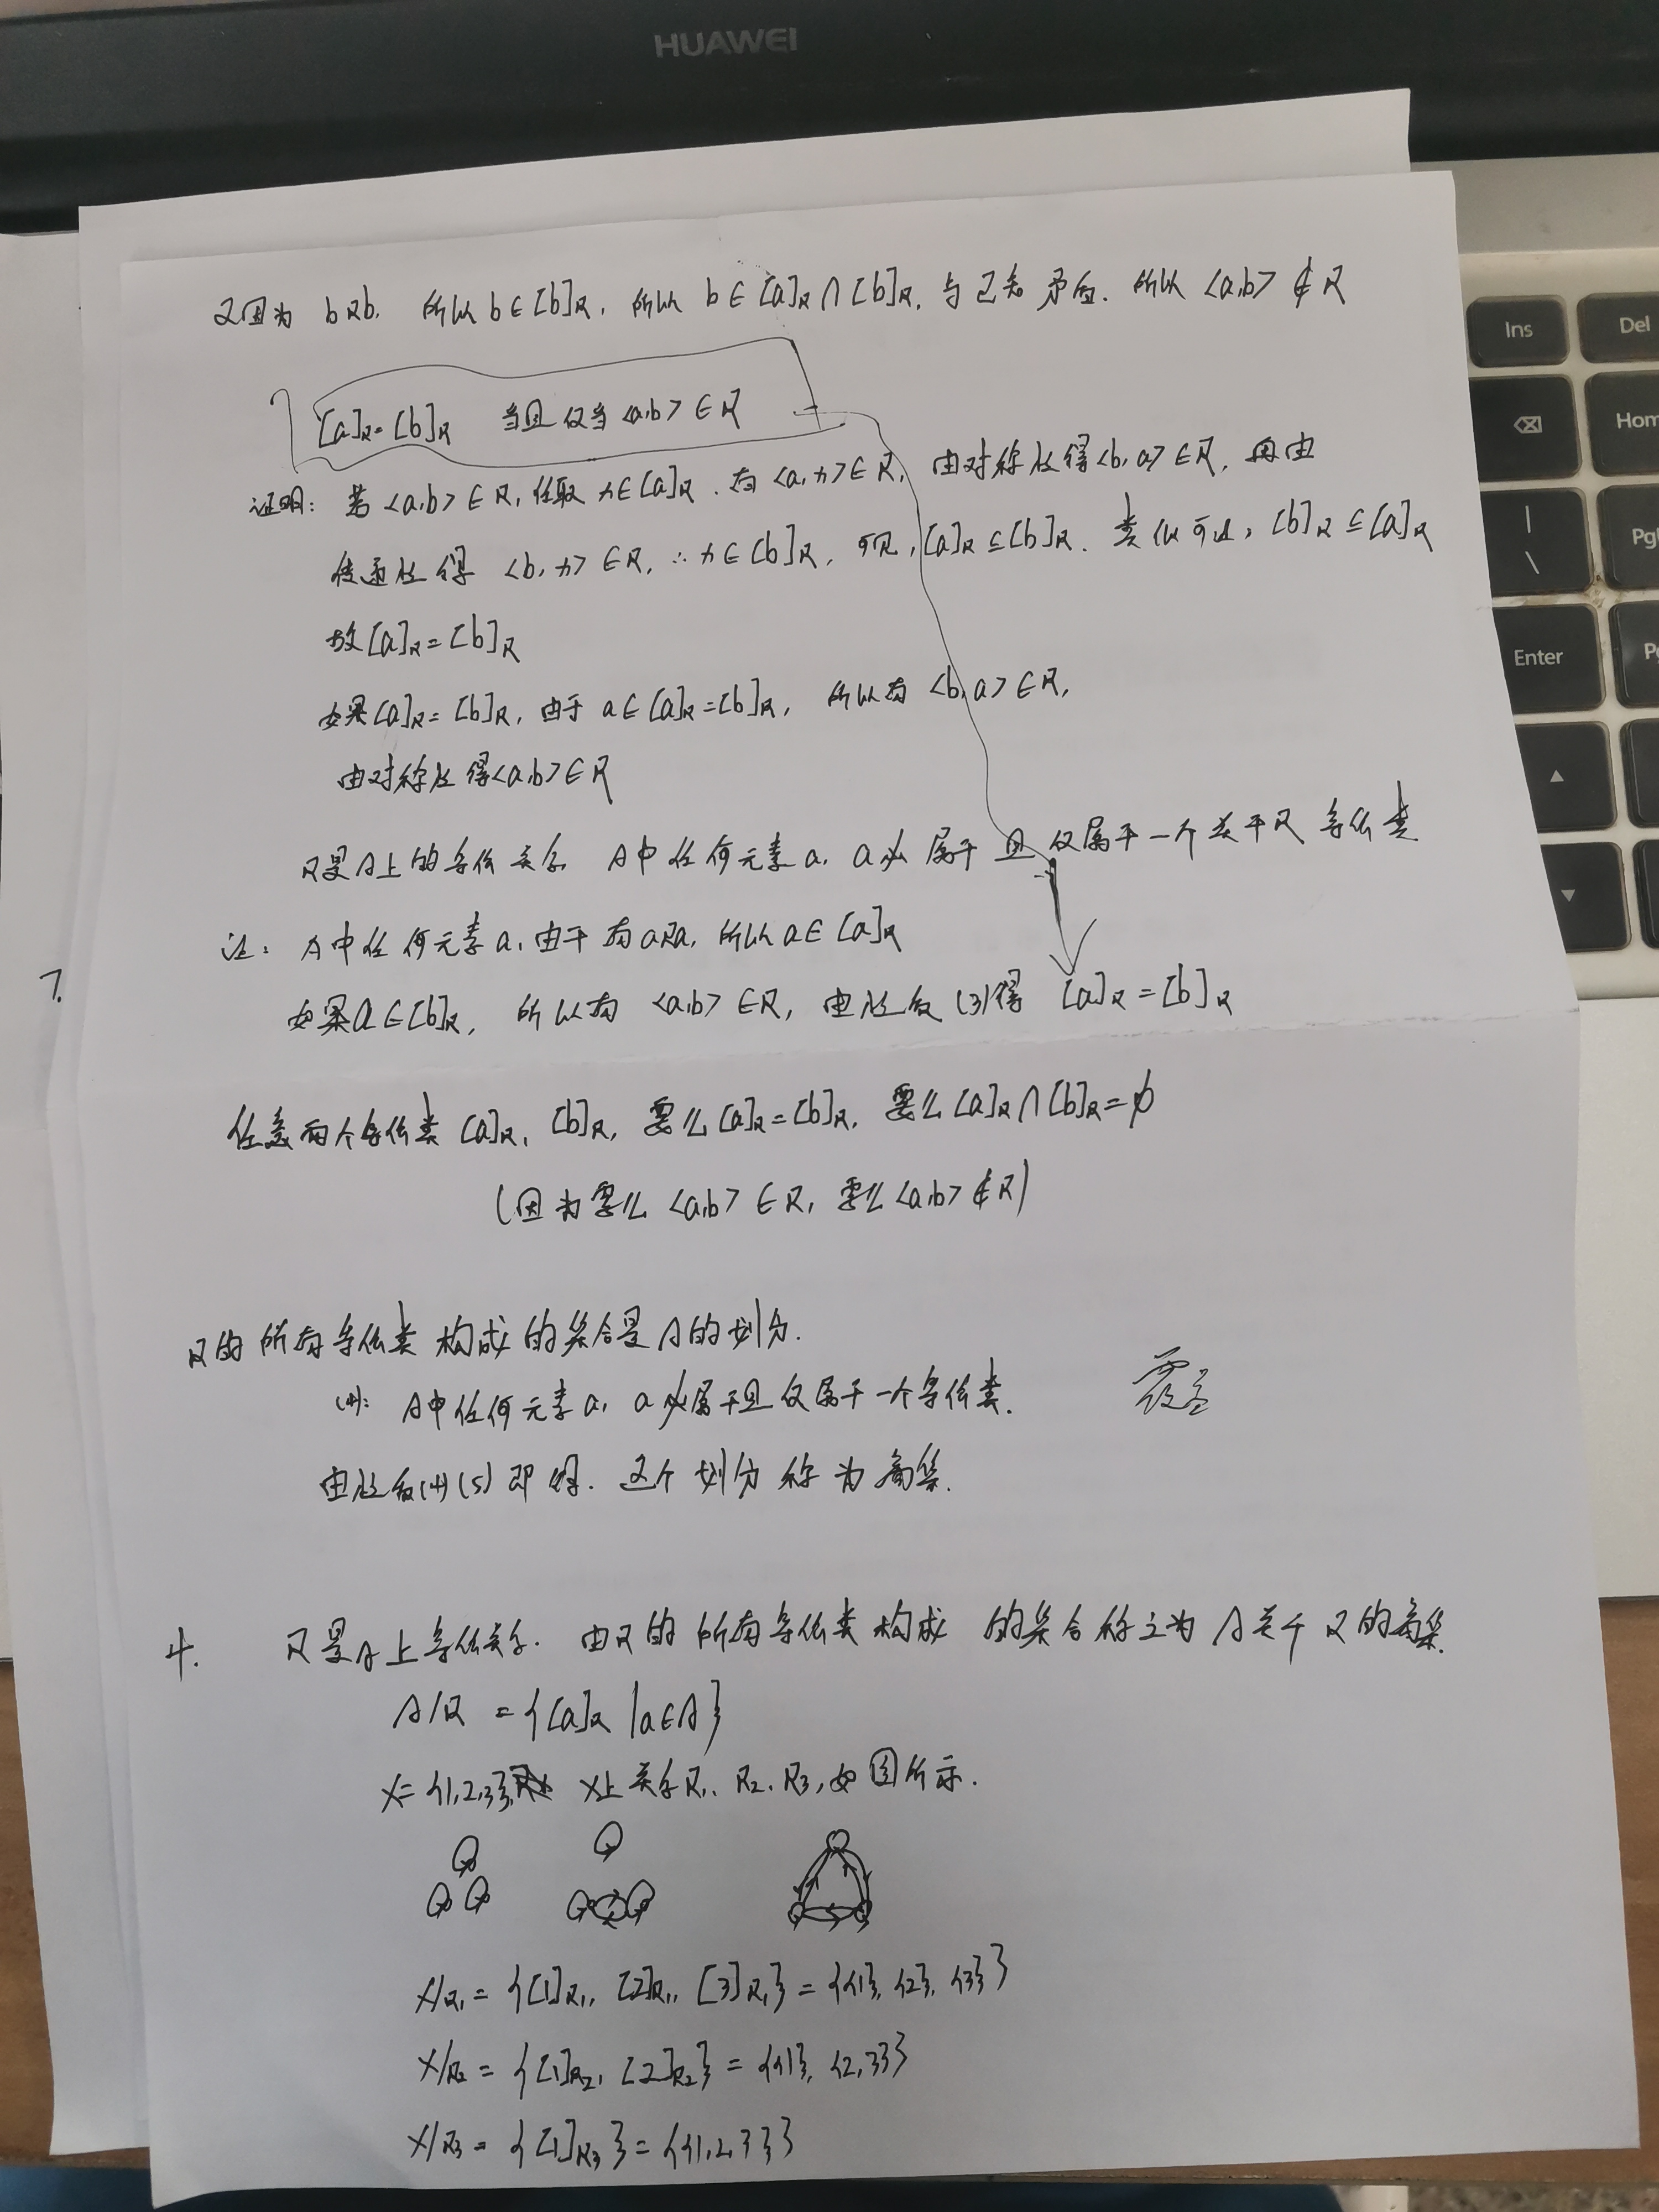 HUAWEI
又因为 bRb, 所以 b∈[b]R, 所以 b∈[a]R∩[b]R, 与已知矛盾. 所以 <a,b>∉R
[a]R=[b]R 当且仅当 <a,b>∈R
证明: 若 <a,b>∈R, 任取 x∈[a]R, 有 <a,x>∈R, 由对称性得 <b,a>∈R, 再由
传递性得 <b,x>∈R, ∴x∈[b]R, [a]R⊆[b]R. 类似可证, [b]R⊆[a]R
故 [a]R=[b]R
如果 [a]R=[b]R, 由于 a∈[a]R=[b]R, 所以有 <b,a>∈R,
由对称性得 <a,b>∈R
R是A上的等价关系, A中任何元素a, a必属于且仅属于一个关于R等价类
证: A中任何元素a, 由于有aRa, 所以a∈[a]R
7.
如果a∈[b]R, 所以有 <a,b>∈R, 由性质(3)得 [a]R=[b]R
任意两个等价类 [a]R, [b]R, 要么[a]R=[b]R, 要么[a]R∩[b]R=∅
(因为要么 <a,b>∈R, 要么 <a,b>∉R)
R的所有等价类构成的集合是A的划分.
(4): A中任何元素a, a必属于且仅属于一个等价类.
由性质(4)(5)即得. 这个划分称为商集.
4. R是A上等价关系. 由R的所有等价类构成的集合称之为A关于R的商集.
A/R={[a]R|a∈A}
X={1,2,3}, X上关系R1, R2, R3, 如图所示.
X/R1={[1]R1, [2]R1, [3]R1}={{1}, {2}, {3}}
X/R2={[1]R2, [2]R2}={{1}, {2,3}}
X/R3={[1]R3}={{1,2,3}}
Ins
Del
Hom
Enter